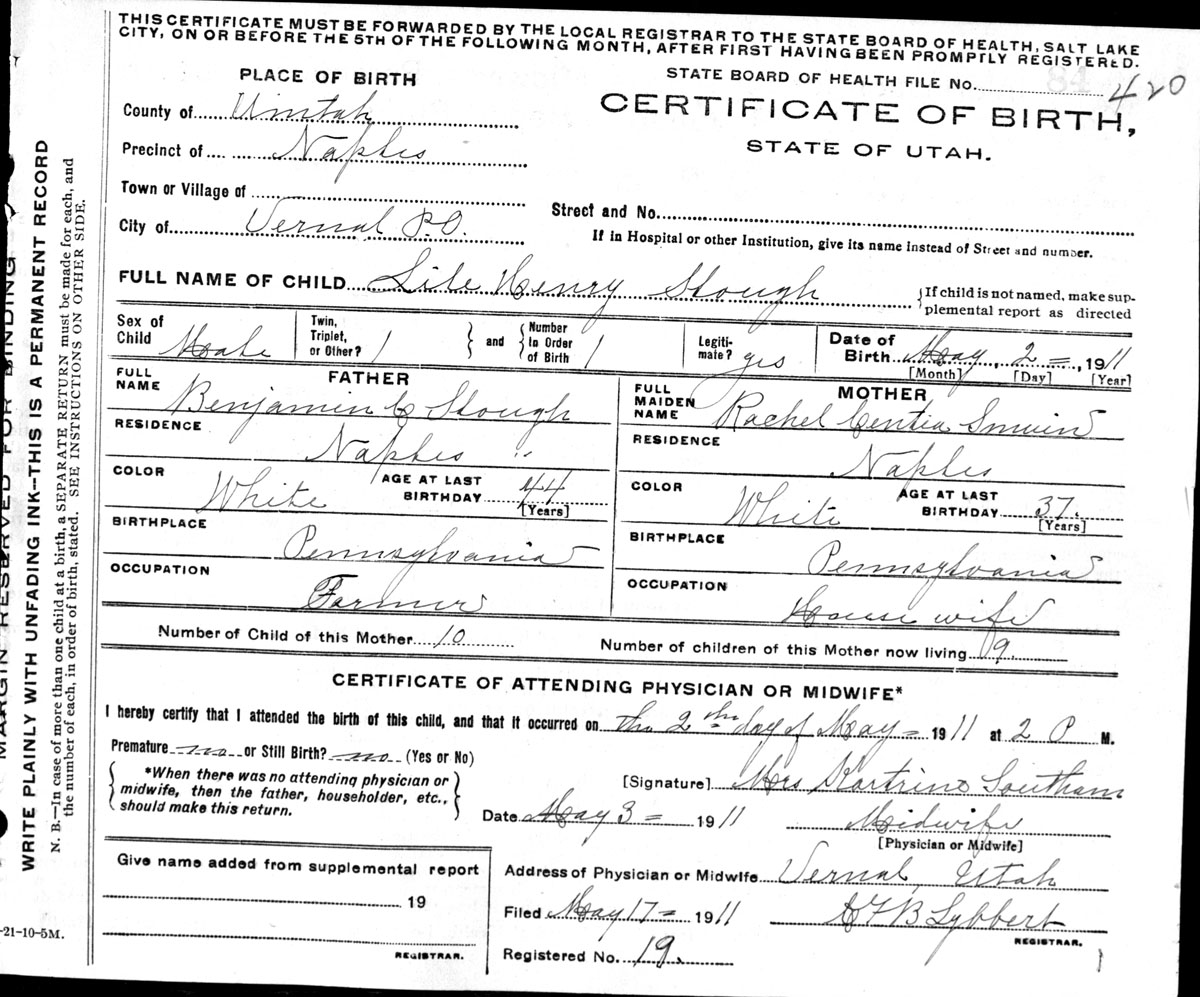 THIS CERTIFICATE MUST BE FORWARDED BY THE LOCAL REGISTRAR TO THE STATE BOARD OF HEALTH, SALT LAKE
CITY, ON OR BEFORE THE 5TH OF THE FOLLOWING MONTH, AFTER FIRST HAVING BEEN PROMPTLY REGISTERED.
PLACE OF BIRTH
STATE BOARD OF HEALTH FILE No. 84 420
County of Uintah
CERTIFICATE OF BIRTH,
Precinct of Naples
STATE OF UTAH.
Town or Village of
Street and No.
City of Vernal P.O.
If in Hospital or other Institution, give its name instead of Street and number.
FULL NAME OF CHILD Lile Henry Slough
{If child is not named, make sup-
plemental report as directed
Sex of Child Male
Twin, Triplet, or Other? 1
} and {
Number In Order of Birth 1
Legiti-mate? yes
Date of Birth May 2 =, 1911
[Month] [Day] [Year]
FATHER
FULL NAME Benjamin C Slough
RESIDENCE Naples
COLOR White
AGE AT LAST BIRTHDAY 44
[Years]
BIRTHPLACE Pennsylvania
OCCUPATION Farmer
MOTHER
FULL MAIDEN NAME Rachel Centia Smuin
RESIDENCE Naples
COLOR White
AGE AT LAST BIRTHDAY 37.
[Years]
BIRTHPLACE Pennsylvania
OCCUPATION House wife
Number of Child of this Mother 10
Number of children of this Mother now living 9
CERTIFICATE OF ATTENDING PHYSICIAN OR MIDWIFE*
I hereby certify that I attended the birth of this child, and that it occurred on the 2 day of May = 1911 at 2 P M.
Premature no or Still Birth? no (Yes or No)
{ *When there was no attending physician or
midwife, then the father, householder, etc.,
should make this return. }
[Signature] Mrs Kartrine Southam
Date May 3 = 1911
Midwife
[Physician or Midwife]
Give name added from supplemental report
19
REGISTRAR.
Address of Physician or Midwife Vernal, Utah
Filed May 17 = 1911
B Lybbert
REGISTRAR.
Registered No. 19.
MARGIN RESERVED FOR BINDING
WRITE PLAINLY WITH UNFADING INK—THIS IS A PERMANENT RECORD
N. B.—In case of more than one child at a birth, a SEPARATE RETURN must be made for each, and
the number of each, in order of birth, stated. SEE INSTRUCTIONS ON OTHER SIDE.
-21-10-5M.